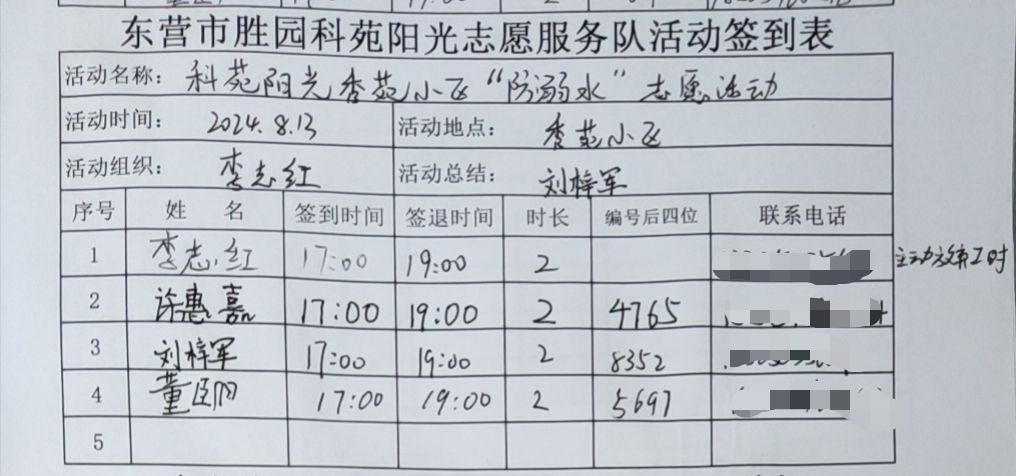 东营市胜园科苑阳光志愿服务队活动签到表
活动名称： 科苑阳光香苑小区“防溺水”志愿活动
活动时间： 2024.8.13 活动地点： 香苑小区
活动组织： 李志红 活动总结： 刘梓军
序号 姓 名 签到时间 签退时间 时长 编号后四位 联系电话
1 李志红 17:00 19:00 2 主动放弃工时
2 许惠嘉 17:00 19:00 2 4765
3 刘梓军 17:00 19:00 2 8352
4 董 17:00 19:00 2 5697
5